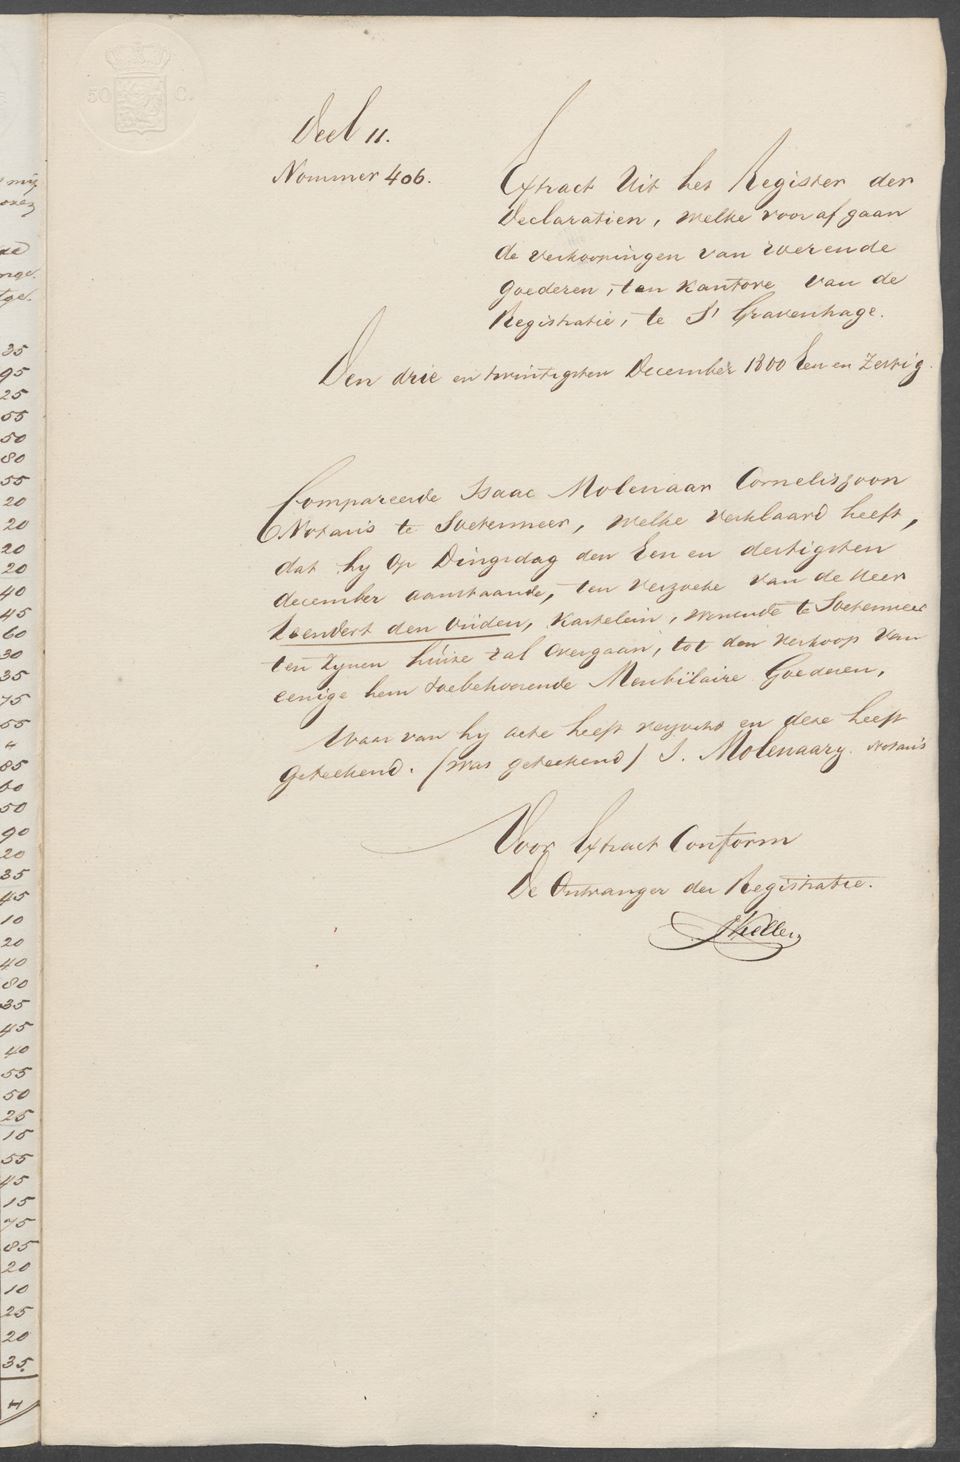 50 C.
Deel 11.
Nommer 406.
Extract Uit het Register der
Declaratien, welke vooraf gaan
de verkoopingen van roerende
goederen, ten kantore van de
Registratie, te S' Gravenhage.
Den drie en twintigsten December 1800 Een en Zestig.
Compareerde Isaac Molenaar Corneliszoon
Notaris te Soetermeer, welke verklaard heeft,
dat hy op Dingsdag den Een en dertigsten
december aanstaande, ten verzoeke van de Heer
Leendert den Uiden, Kastelein, wonende te Soetermeer
ten zynen huize zal overgaan, tot den verkoop van
eenige hem toebehoorende Meubilaire Goederen,
Waar van hy acte heeft verzocht en deze heeft
geteekend. (was geteekend) I. Molenaar Notaris
Voor Extract Conform
De Ontvanger der Registratie.
35
95
25
55
50
80
55
20
20
20
20
40
45
60
30
35
75
55
"
85
60
50
90
20
35
45
10
20
40
80
35
45
40
55
50
25
15
55
45
15
75
85
20
10
25
20
35.